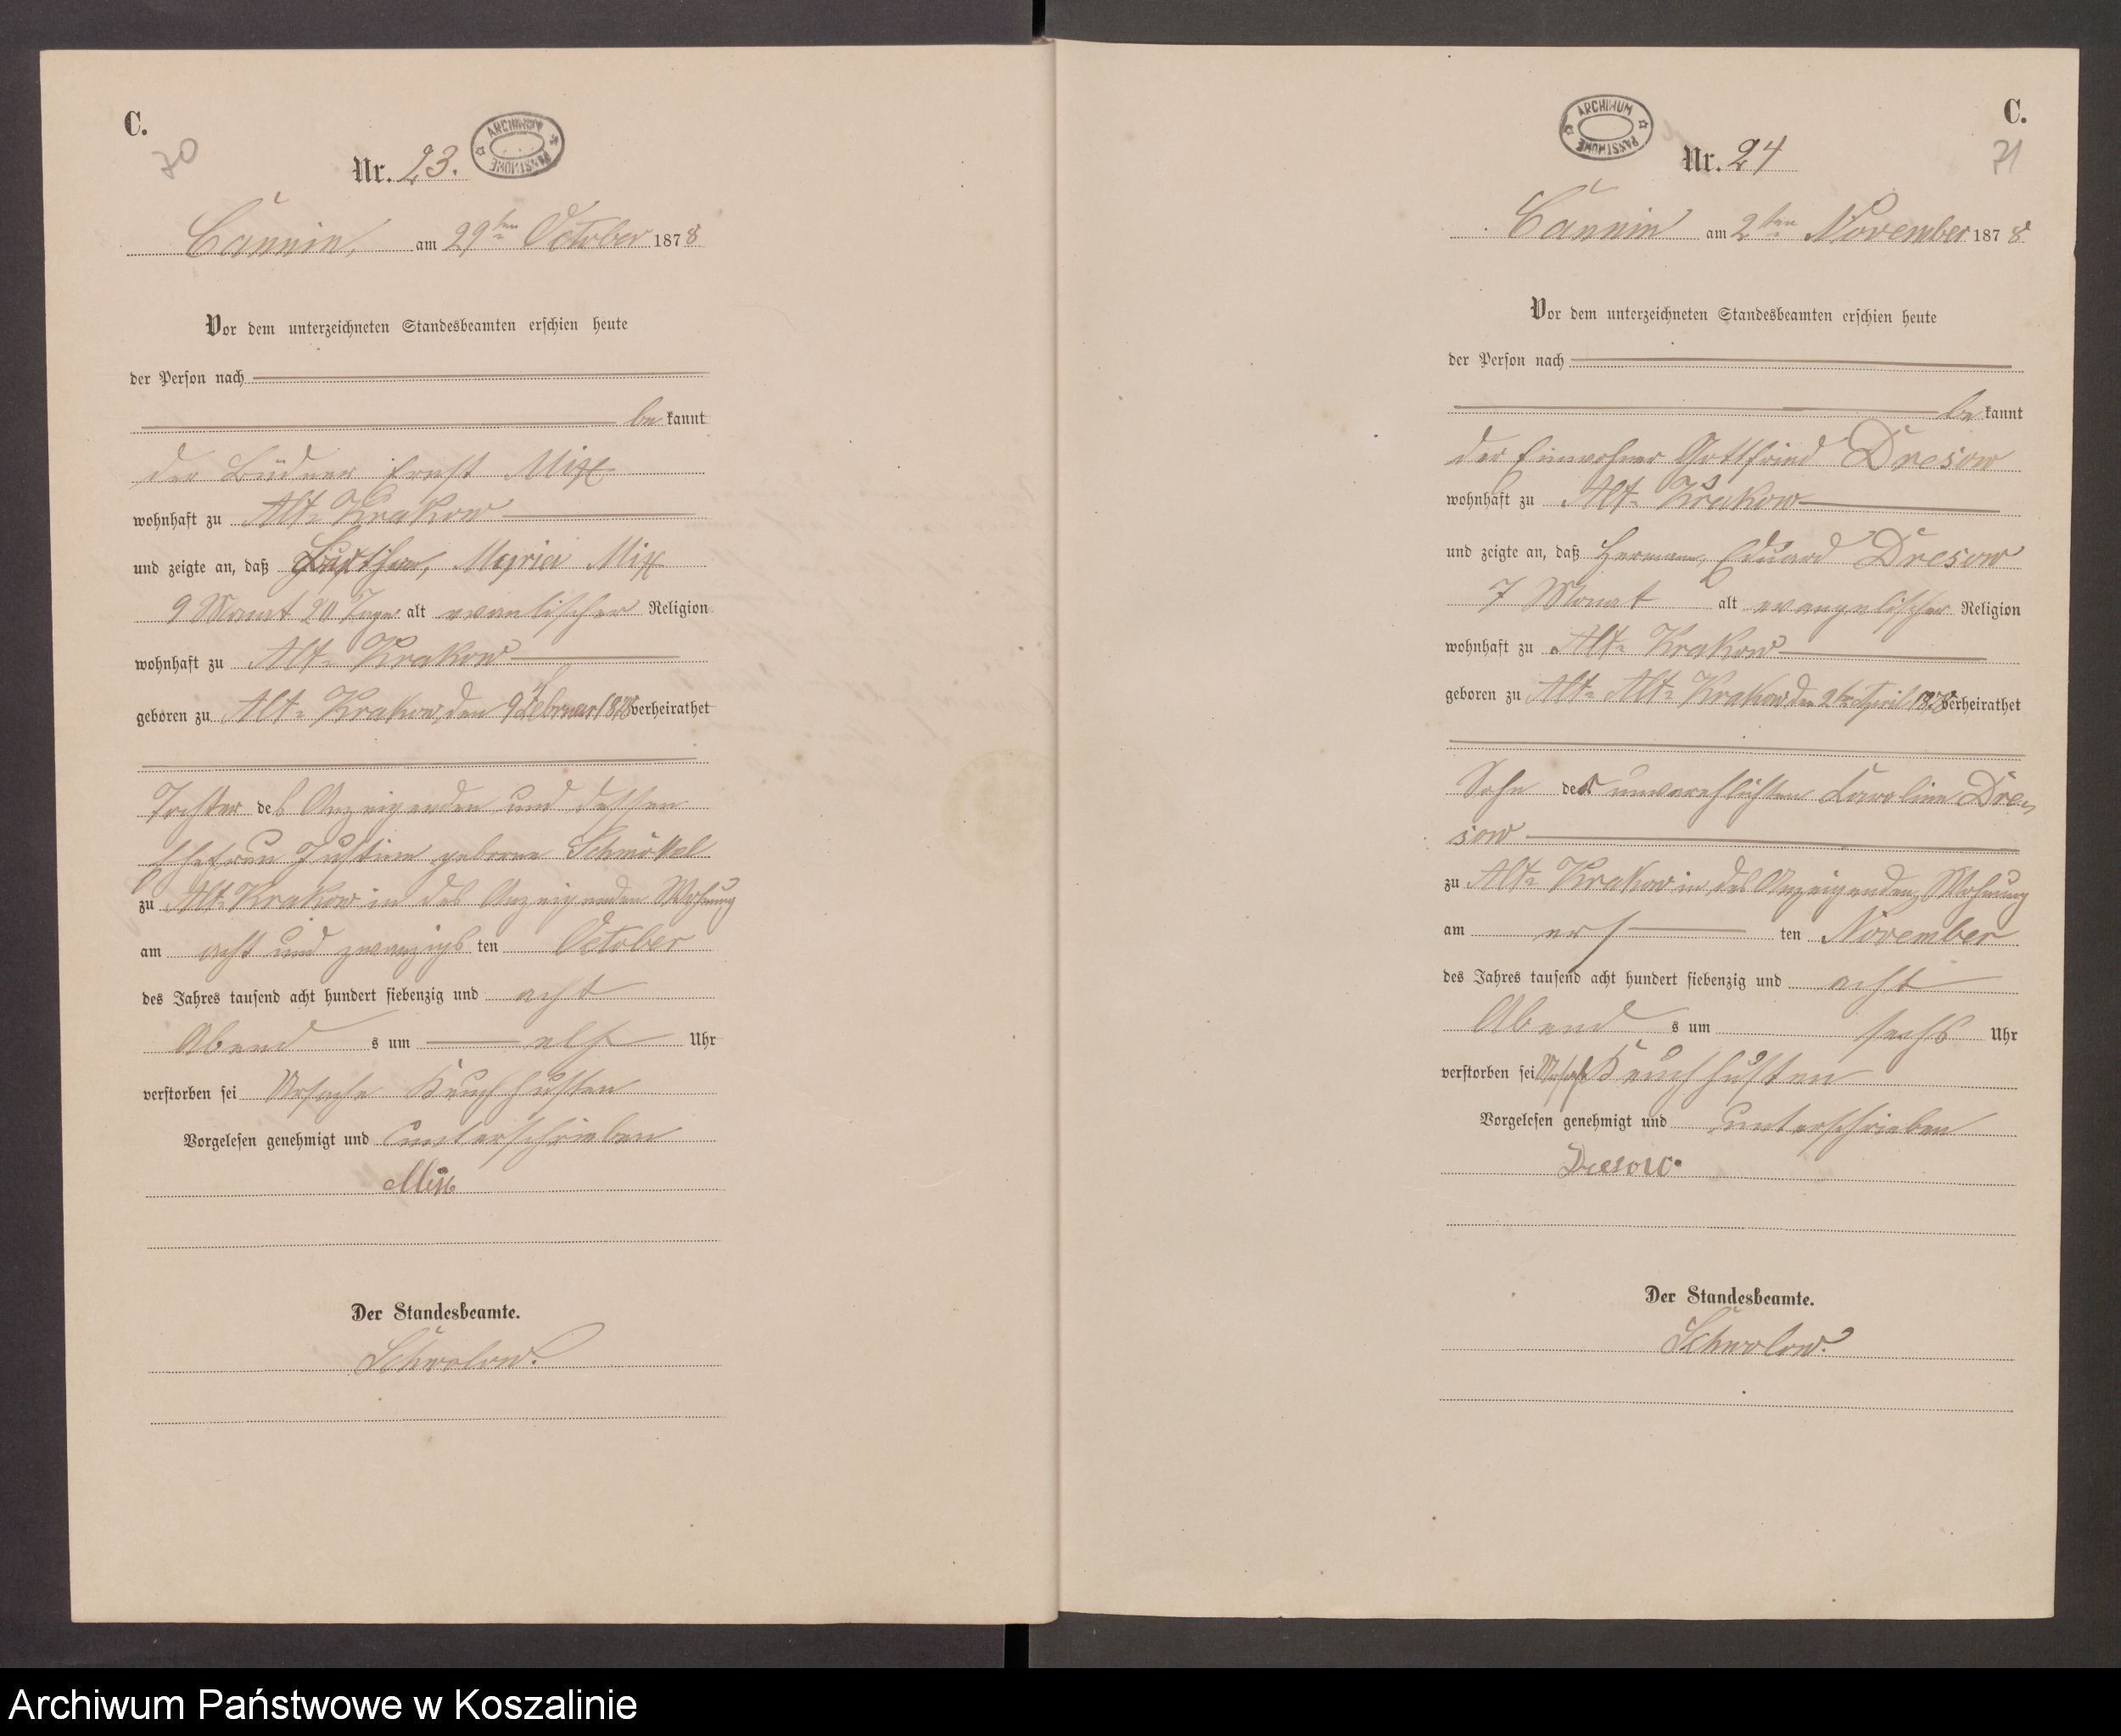 C.
70
Nr. 23.
ARCHIWUM PAŃSTWOWE
Cannin, am 29ten October 1878
Vor dem unterzeichneten Standesbeamten erschien heute
der Person nach
be kannt
der Büdner Ernst Mix
wohnhaft zu Alt- Krakow
und zeigte an, daß Maria Mix
9 Monat 20 Tage alt evanlischer Religion
wohnhaft zu Alt- Krakow
geboren zu Alt- Krakow, den 9 Februar 1878 verheirathet
Tochter des Anzeigenden und dessen
Ehefrau Justine geborne Schmökel
zu Alt- Krakow in des Anzeigenden Wohnung
am acht und zwanzigs ten October
des Jahres tausend acht hundert siebenzig und acht
Abend s um elf Uhr
verstorben sei Ursache Keuchhusten
Vorgelesen genehmigt und unterschrieben
Mix
Der Standesbeamte.
Schwolow.
C.
71
Nr. 24
ARCHIWUM PAŃSTWOWE
Cannin am 2ten November 1878
Vor dem unterzeichneten Standesbeamten erschien heute
der Person nach
be kannt
der Einwohner Gottfried Dresow
wohnhaft zu Alt- Krakow
und zeigte an, daß Hermann, Eduard Dresow
7 Monat alt evangelischer Religion
wohnhaft zu Alt- Krakow
geboren zu Alt- Alt- Krakow, den 2ten April 1878 verheirathet
Sohn der unverehlichten Karoline Dre-
sow
zu Alt- Krakow in des Anzeigenden Wohnung
am ers ten November
des Jahres tausend acht hundert siebenzig und acht
Abend s um sechs Uhr
verstorben sei Ursache Keuchhusten
Vorgelesen genehmigt und unterschrieben
Dresow.
Der Standesbeamte.
Schwolow.
Archiwum Państwowe w Koszalinie